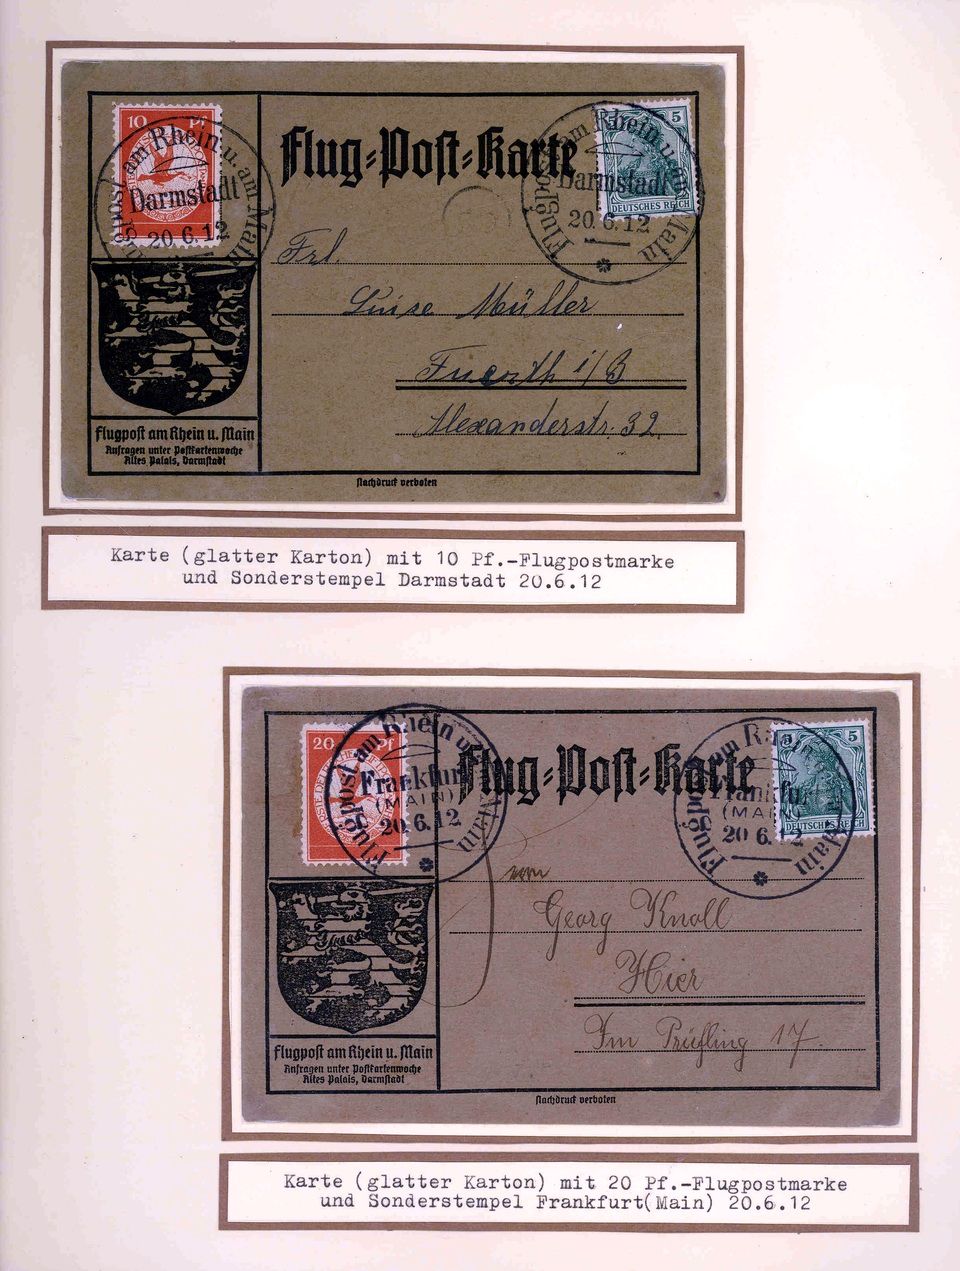 10 Pf
Flugpost am Rhein u. am Main
Darmstadt
20.6.12
Flug-Post-Karte
5
DEUTSCHES REICH
Flugpost am Rhein u. am Main
Darmstadt
20.6.12
Frl.
Luise Müller
Fuerth i/B
Alexanderstr. 32.
Flugpost am Rhein u. Main
Anfragen unter Postkartenwoche
Altes Palais, Darmstadt
Nachdruck verboten
Karte (glatter Karton) mit 10 Pf.-Flugpostmarke
und Sonderstempel Darmstadt 20.6.12
20 Pf
Flugpost am Rhein u. am Main
Frankfurt
(MAIN)
20.6.12
Flug-Post-Karte
5 5
DEUTSCHES REICH
Flugpost am Rhein u. am Main
Frankfurt
(MAIN)
20 6.12
Georg Knoll
Hier
Im Prüfling 17.
Flugpost am Rhein u. Main
Anfragen unter Postkartenwoche
Altes Palais, Darmstadt
Nachdruck verboten
Karte (glatter Karton) mit 20 Pf.-Flugpostmarke
und Sonderstempel Frankfurt(Main) 20.6.12